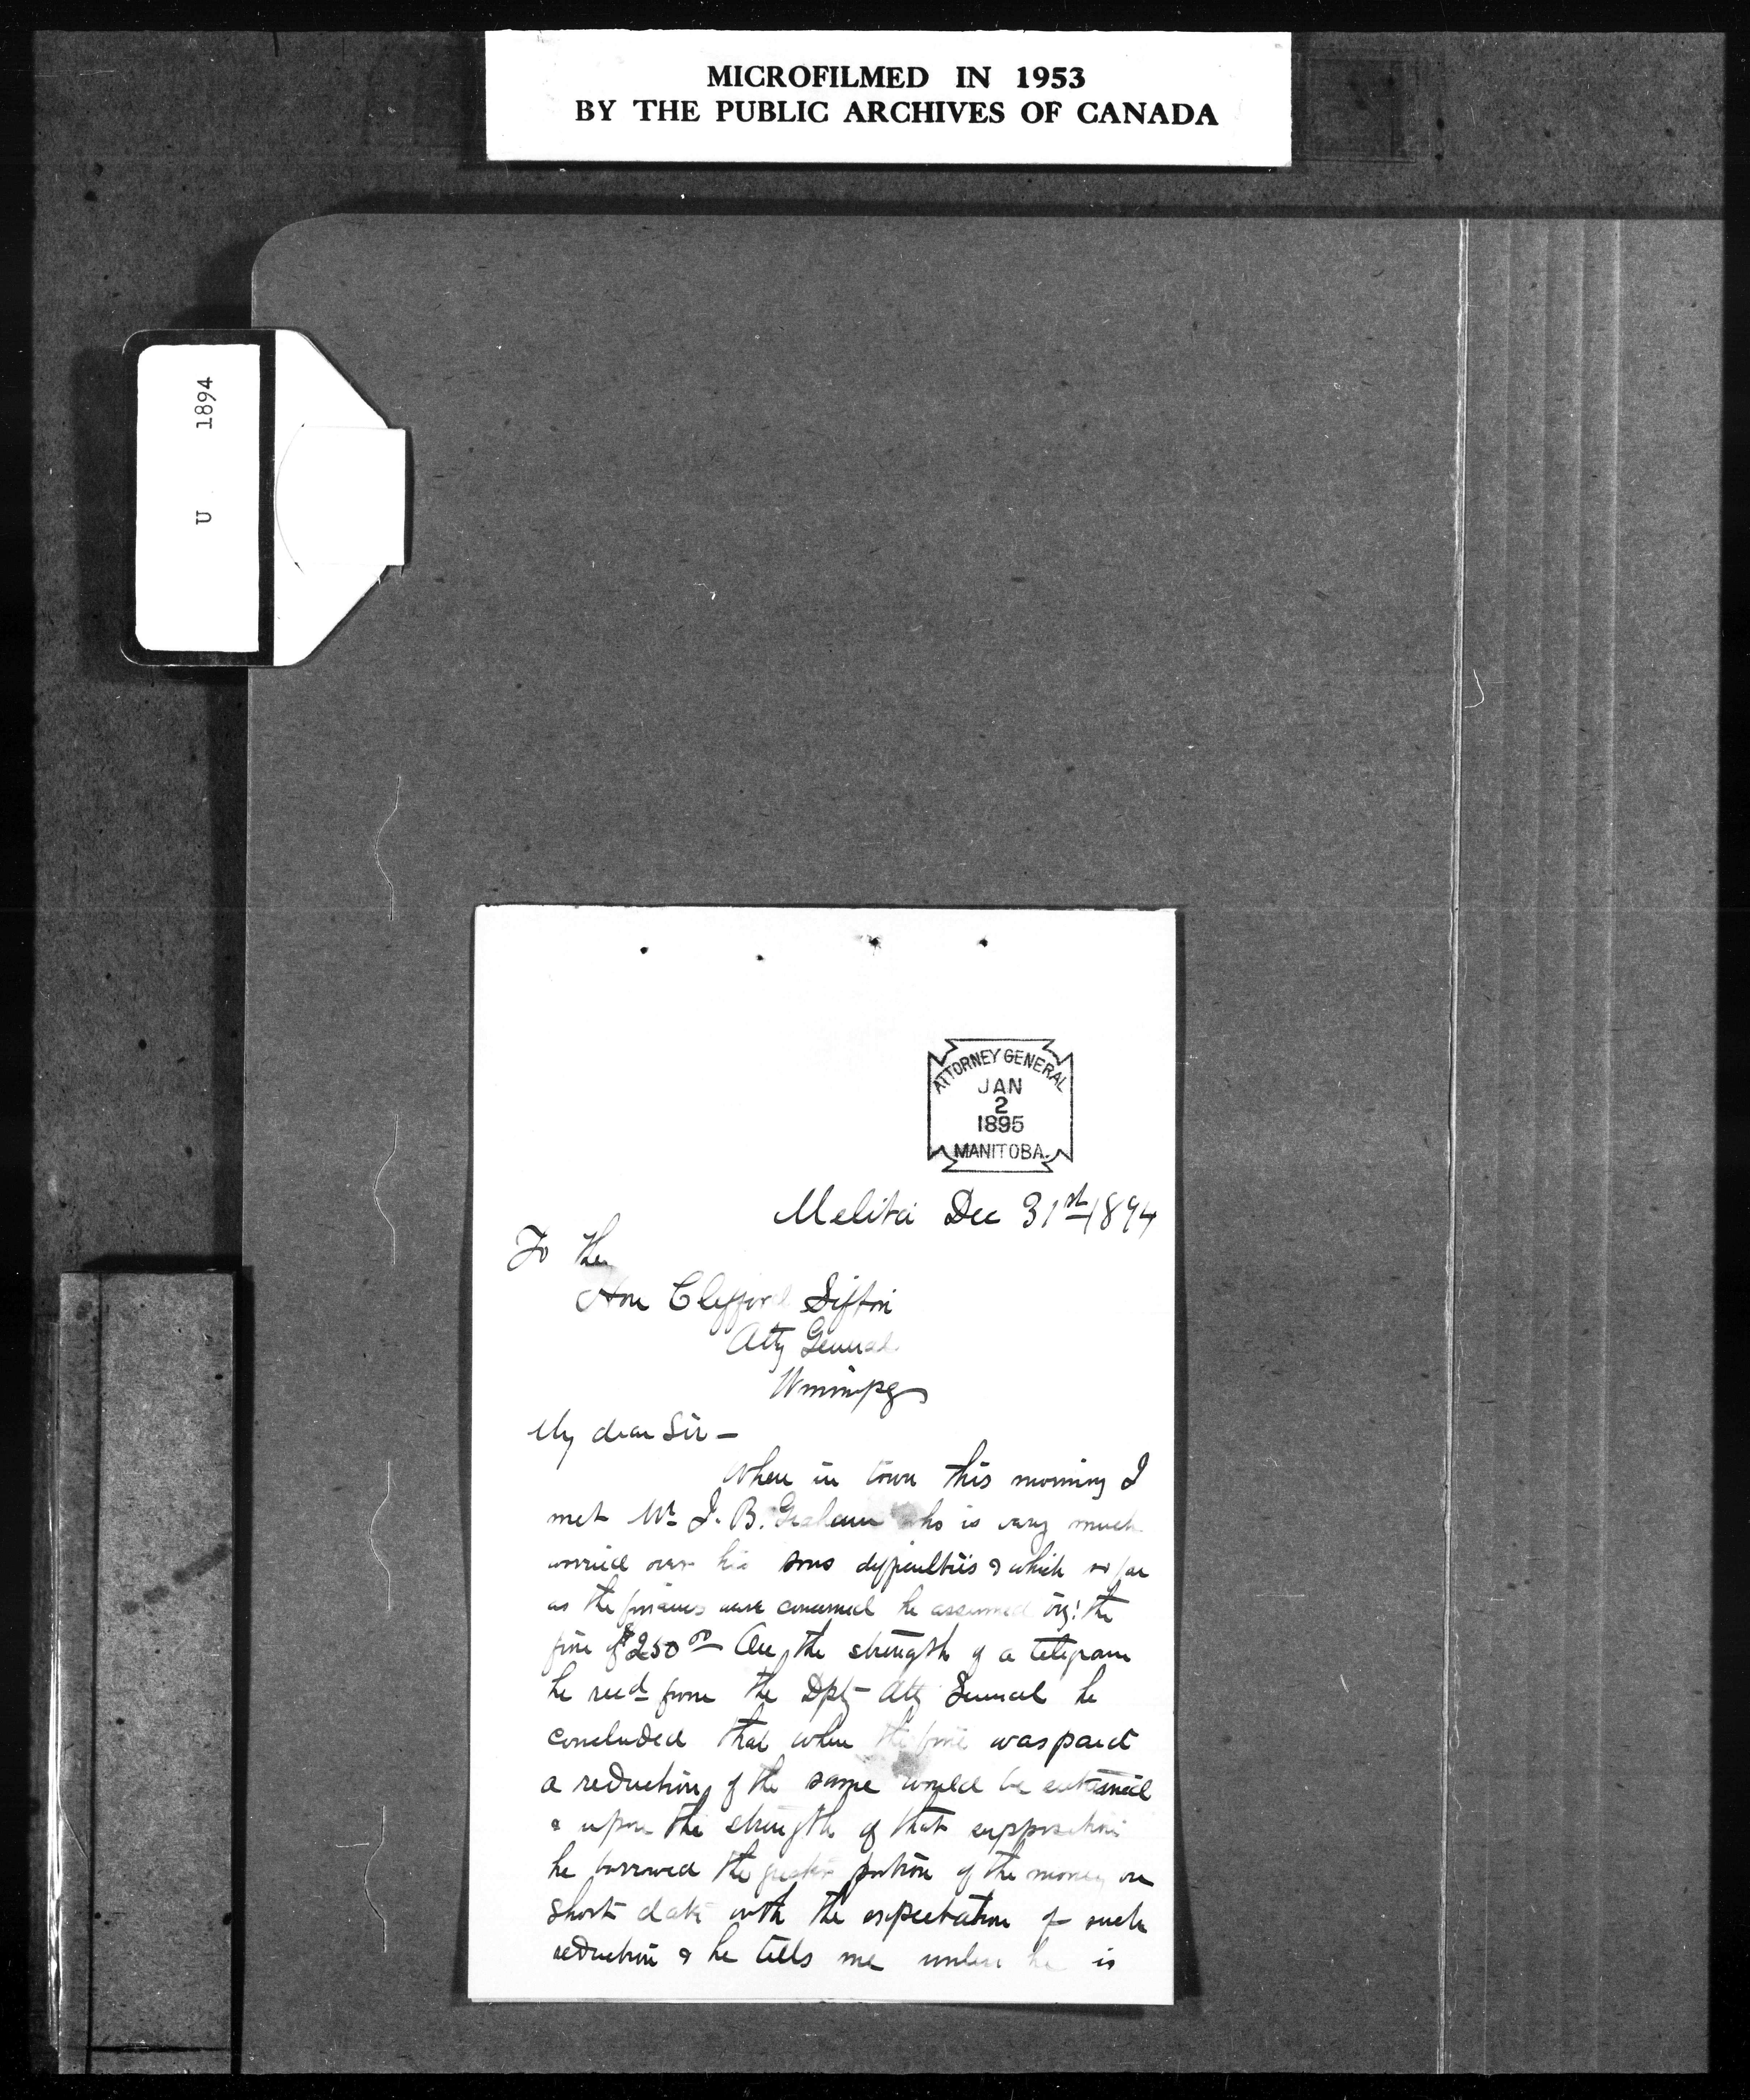 MICROFILMED IN 1953
BY THE PUBLIC ARCHIVES OF CANADA
U 1894
ATTORNEY GENERAL
JAN
2
1895
MANITOBA.
Melita Dec 31st 1894
To the
Hon Clifford Sifton
Atty General
Winnipeg
My dear Sir –
When in town this morning I
met Mr J. B. Graham who is very much
worried over his sons difficulties & which so far
as the finances were concerned he assumed viz: the
fine of $250 00 On the strength of a telegram
he recd from the Dpty Atty General he
concluded that when the fine was paid
a reduction of the same would be
& upon the strength of that supposition
he borrowed the greater portion of the money on
short date with the expectation of such
reduction & he tells me unless he is